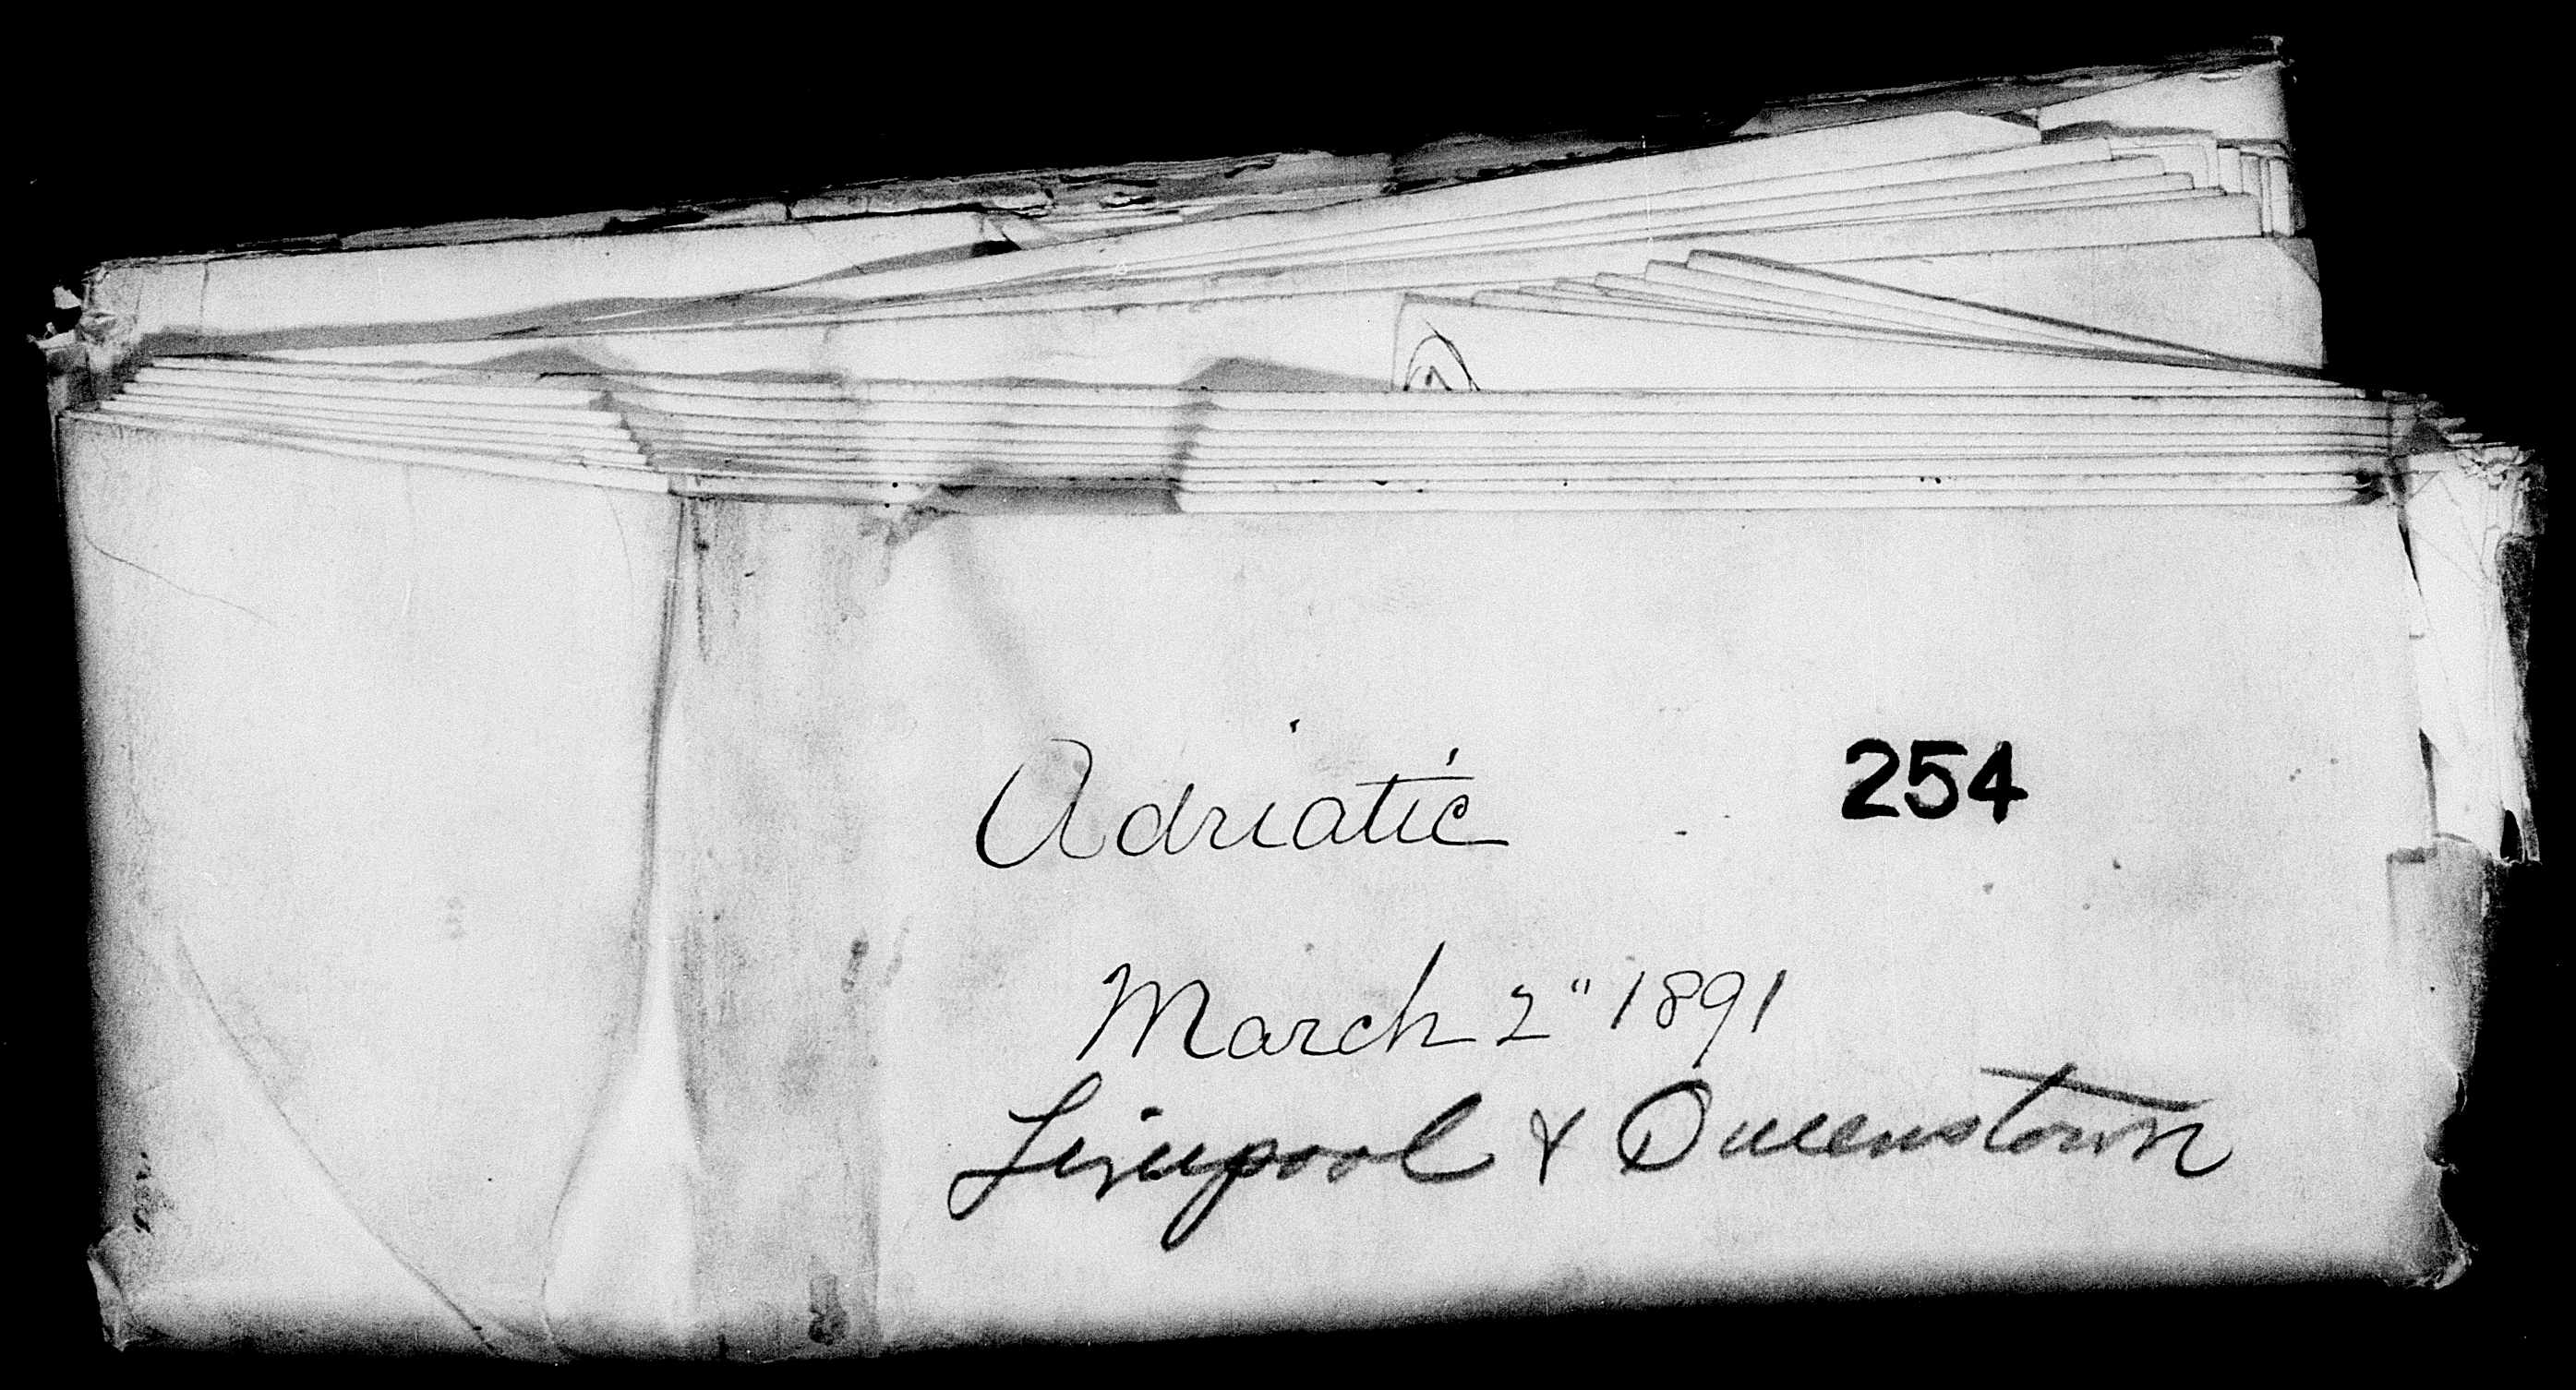 Adriatic 254
March 2" 1891
Liverpool & Queenstown